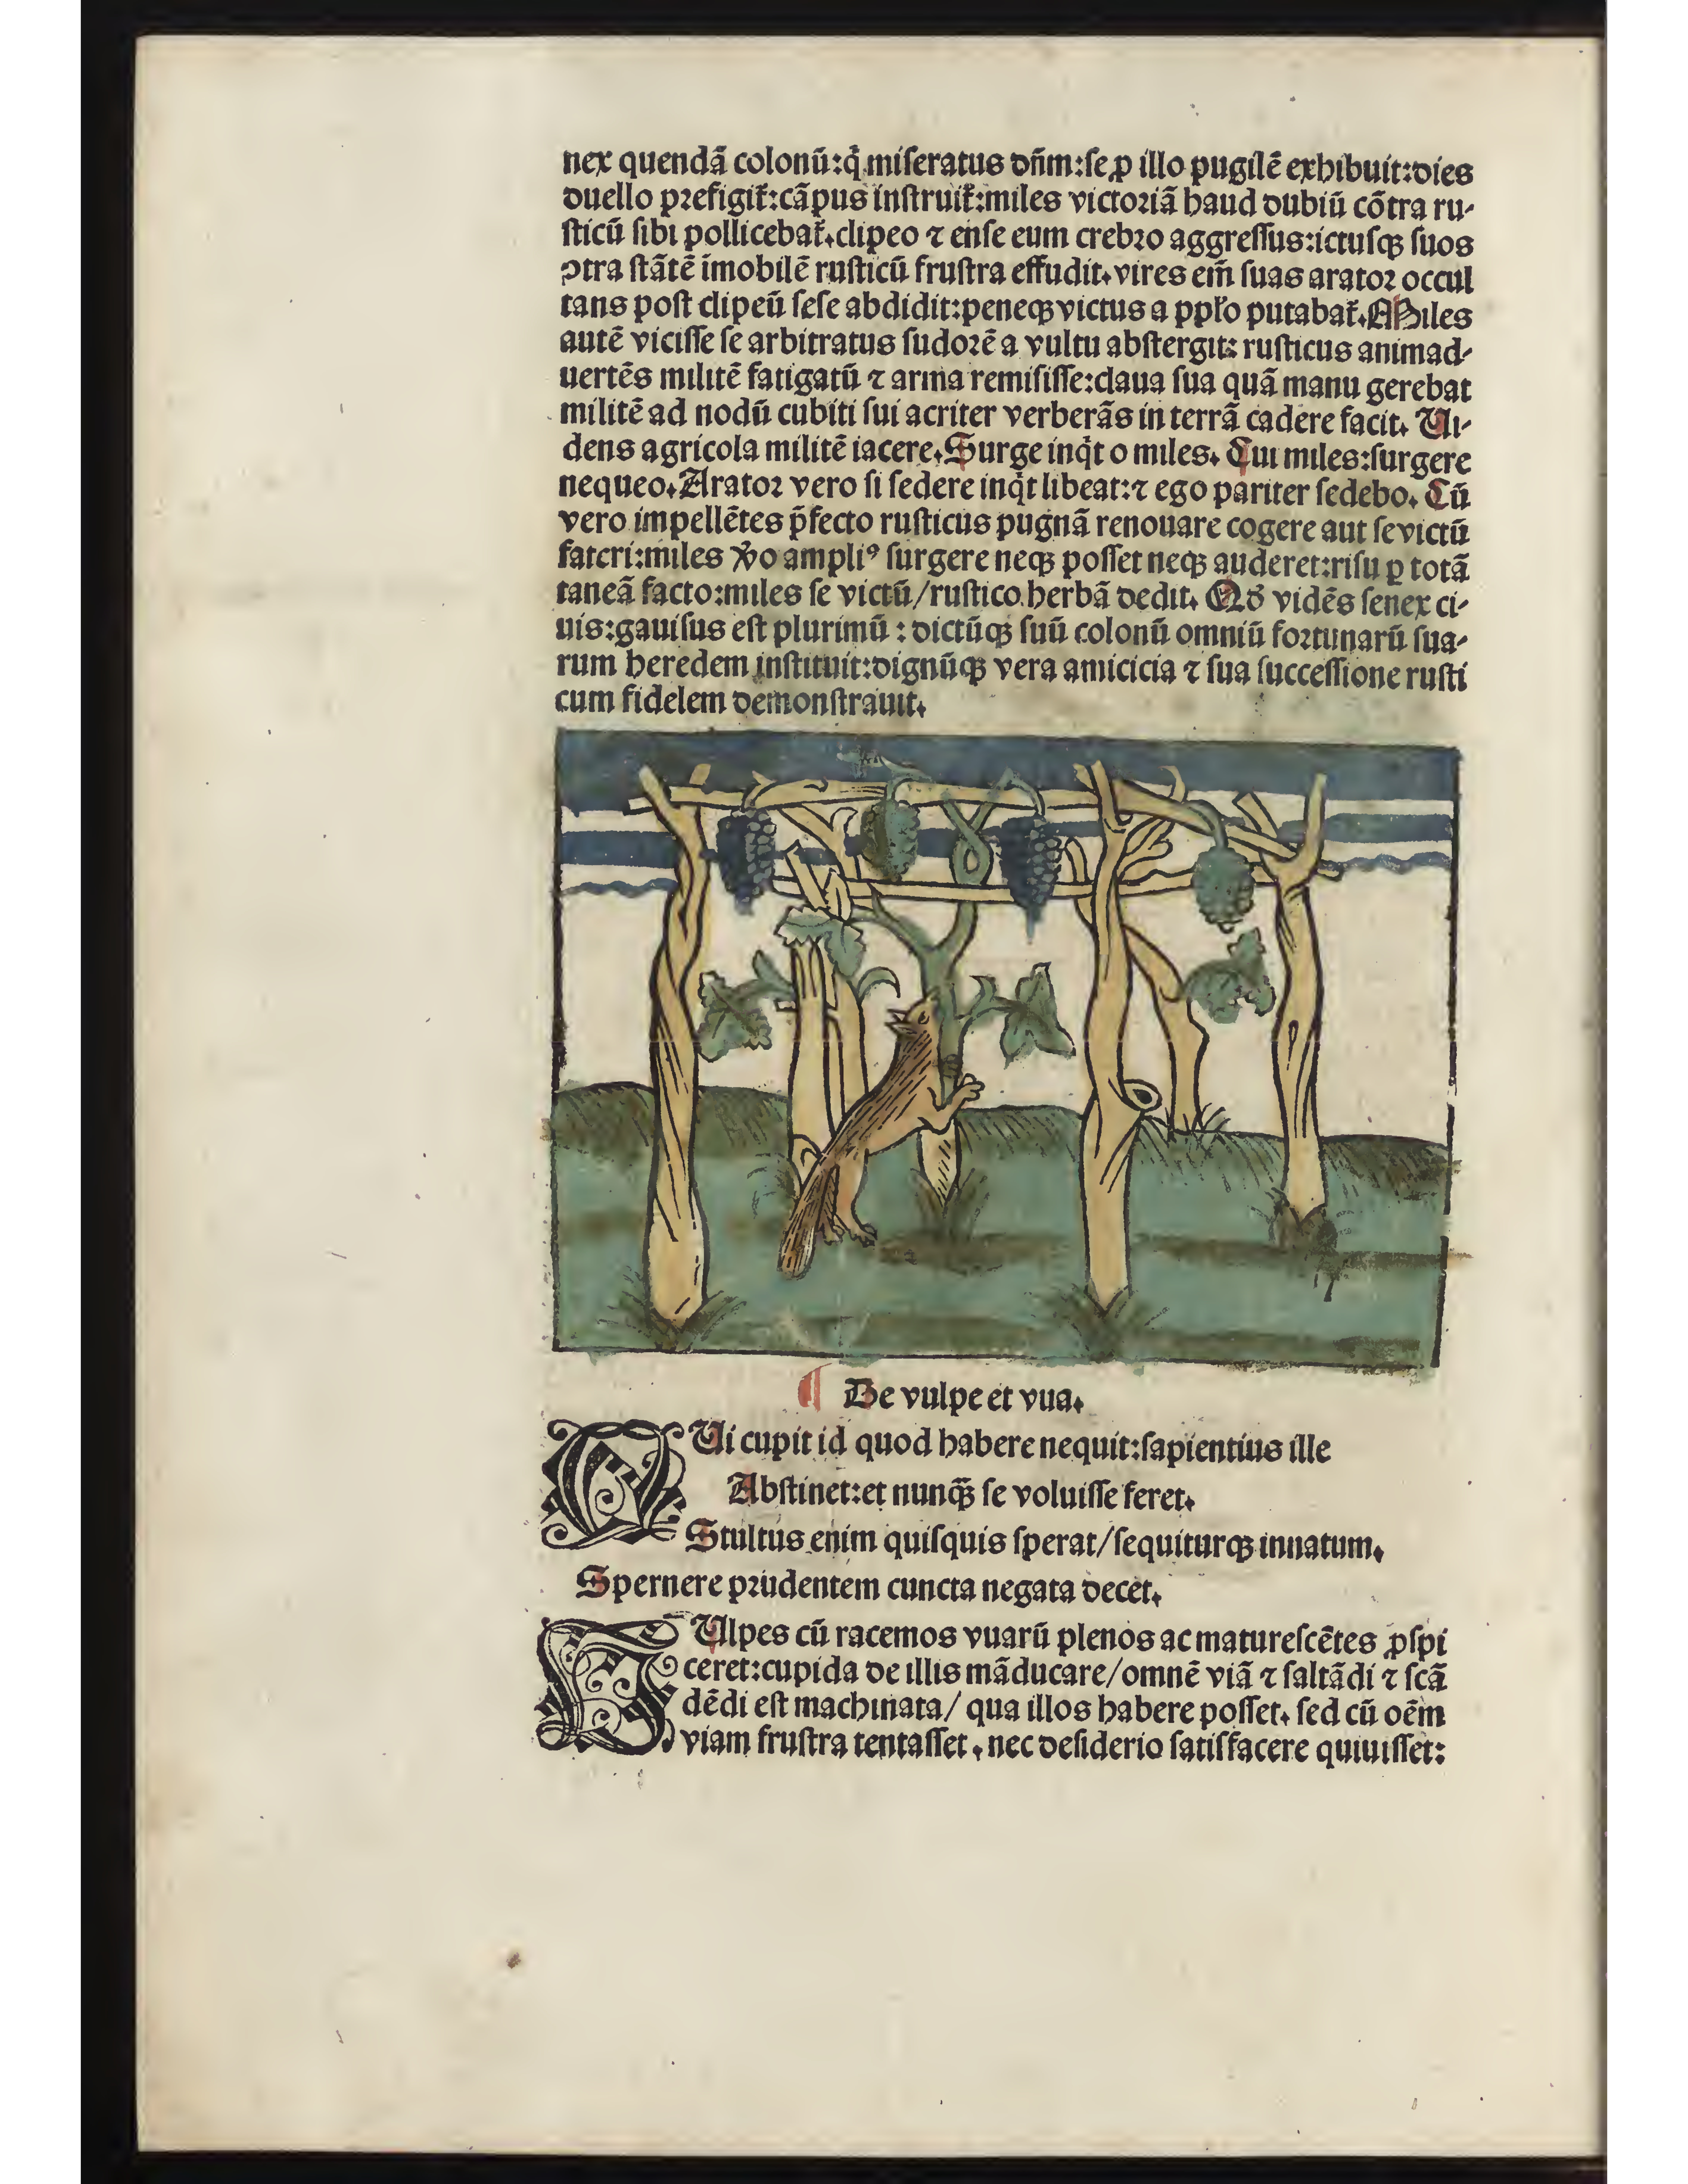 nex quendã colonũ:q̇ miseratus dñm:se ꝓ illo pugilẽ exhibuit:dies
duello prefigit᷑:cãpus instruit᷑:miles victoriã haud dubiũ cõtra ru-
sticũ sibi pollicebat᷑.clipeo ⁊ ense eum crebro aggressus:ictusqꝫ suos
ↄtra stãtẽ ĩmobilẽ rusticũ frustra effudit.vires em̃ suas arator occul
tans post clipeũ sese abdidit:peneqꝫ victus a ppl'o putabat᷑.Miles
autẽ vicisse se arbitratus sudorẽ a vultu abstergit: rusticus animad-
uertẽs militẽ fatigatũ ⁊ arma remisisse:claua sua quã manu gerebat
militẽ ad nodũ cubiti sui acriter verberãs in terrã cadere facit. Ui-
dens agricola militẽ iacere.Surge inq̇t o miles. Cui miles:surgere
nequeo.Arator vero si sedere inq̇t libeat:⁊ ego pariter sedebo. Cũ
vero impellẽtes p̃fecto rusticus pugnã renouare cogere aut se victũ
fateri:miles v̊o ampliꝰ surgere neqꝫ posset neqꝫ auderet:risu ꝑ totã
taneã facto:miles se victũ/rustico herbã dedit. Qd̾ vidẽs senex ci-
uis:gauisus est plurimũ : dictũqꝫ suũ colonũ omniũ fortunarũ sua-
rum heredem instituit:dignũqꝫ vera amicicia ⁊ sua successione rusti
cum fidelem demonstrauit.
¶ De vulpe et vua.
QUi cupit id quod habere nequit:sapientius ille
Abstinet:et nunqꝫ̃ se voluisse feret.
Stultus enim quisquis sperat/sequiturqꝫ innatum.
Spernere prudentem cuncta negata decet.
VUlpes cũ racemos vuarũ plenos ac maturescẽtes ꝓspi
ceret:cupida de illis mãducare/omnẽ viã ⁊ saltãdi ⁊ scã
dẽdi est machinata/ qua illos habere posset. sed cũ oẽm
viam frustra tentasset , nec desiderio satisfacere quiuisset: